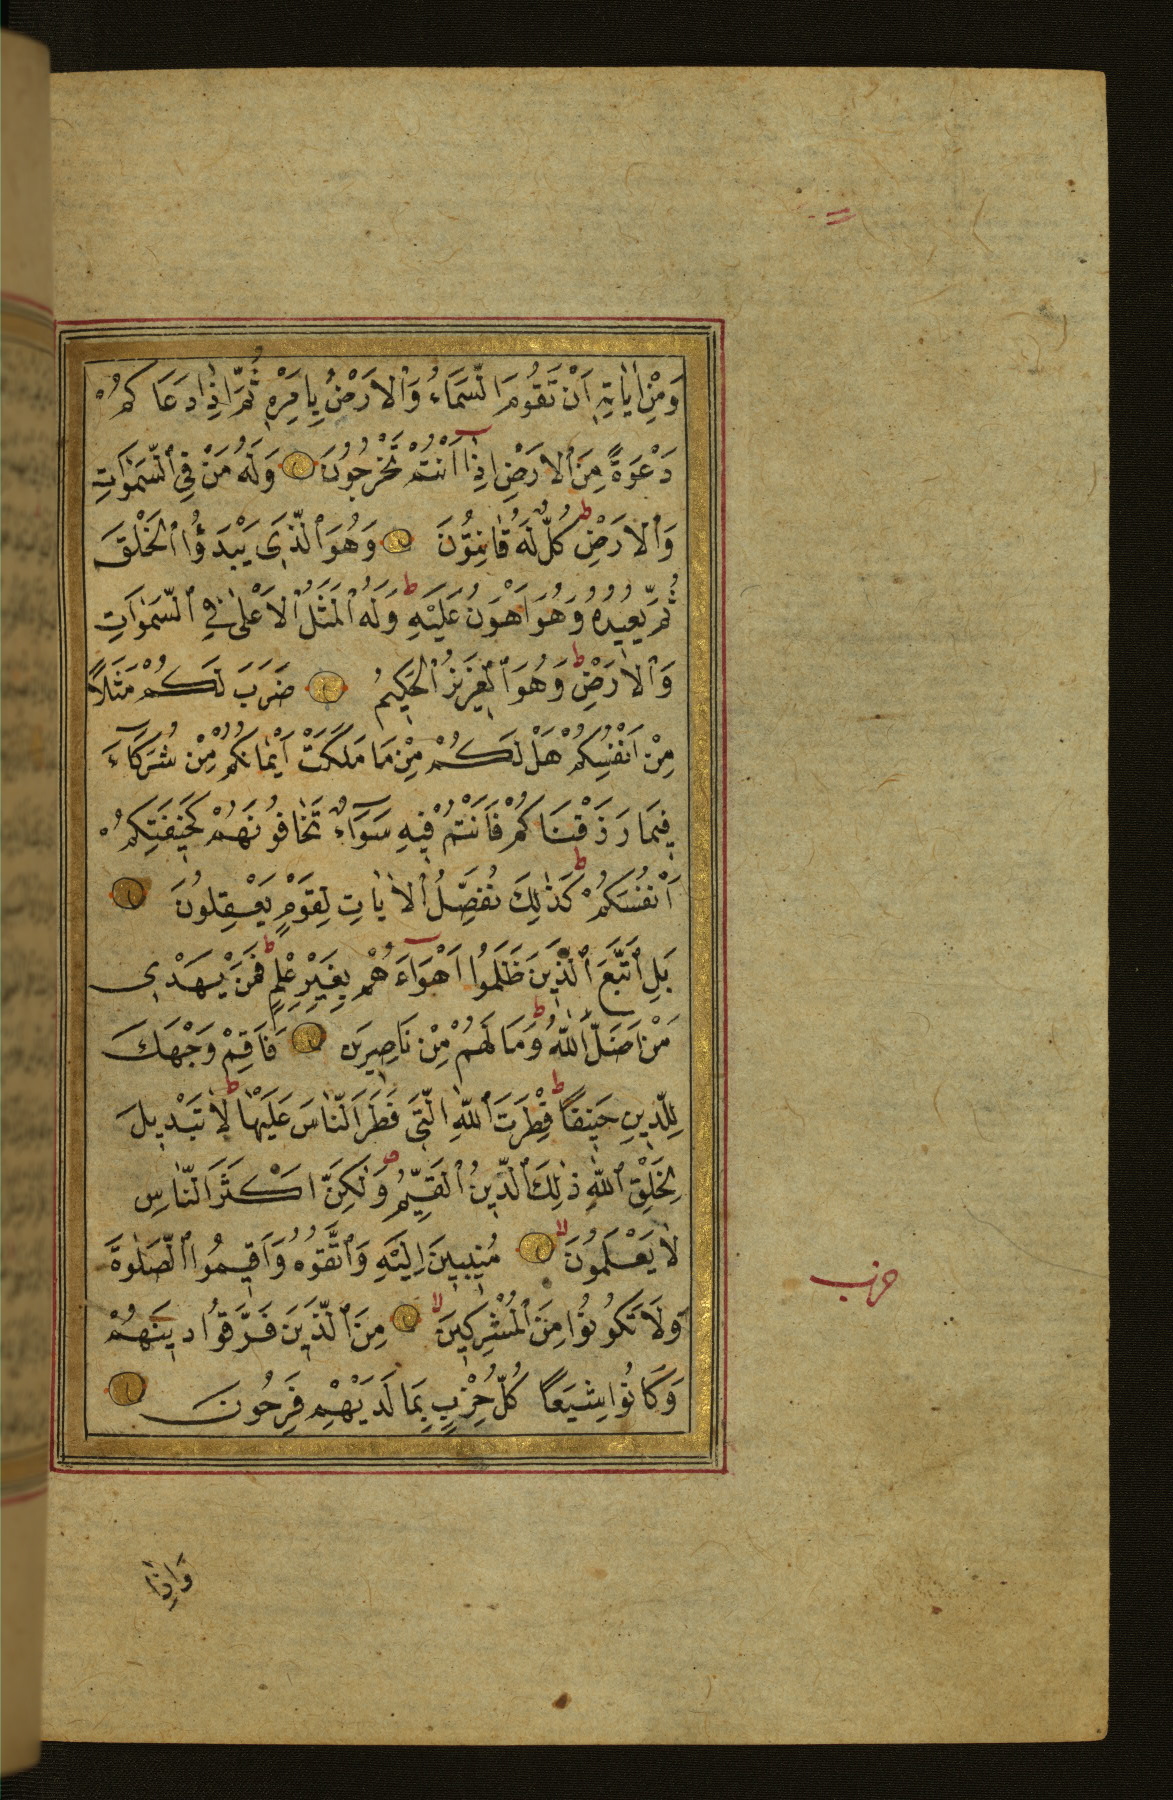 وَمِنْ اٰيَاتِهٖ اَنْ تَقُومَ السَّمَاءُ وَالْاَرْضُ بِاَمْرِهٖ ثُمَّ اِذَا دَعَاكُمْ
دَعْوَةً مِنَ الْاَرْضِ اِذَا اَنْتُمْ تَخْرُجُونَ وَلَهُ مَنْ فِي السَّمٰوَاتِ
وَالْاَرْضِ ط كُلٌّ لَهُ قَانِتُونَ وَهُوَ الَّذِي يَبْدَؤُا الْخَلْقَ
ثُمَّ يُعِيدُهُ وَهُوَ اَهْوَنُ عَلَيْهِ ط وَلَهُ الْمَثَلُ الْاَعْلٰى فِي السَّمٰوَاتِ
وَالْاَرْضِ ط وَهُوَ الْعَزِيزُ الْحَكِيمُ ضَرَبَ لَكُمْ مَثَلًا
مِنْ اَنْفُسِكُمْ هَلْ لَكُمْ مِنْ مَا مَلَكَتْ اَيْمَانُكُمْ مِنْ شُرَكَاءَ
فِيمَا رَزَقْنَاكُمْ فَاَنْتُمْ فِيهِ سَوَاءٌ تَخَافُونَهُمْ كَخِيفَتِكُمْ
اَنْفُسَكُمْ ط كَذٰلِكَ نُفَصِّلُ الْاٰيَاتِ لِقَوْمٍ يَعْقِلُونَ
بَلِ اتَّبَعَ الَّذِينَ ظَلَمُوا اَهْوَاءَهُمْ بِغَيْرِ عِلْمٍ ط فَمَنْ يَهْدِي
مَنْ اَضَلَّ اللّٰهُ ط وَمَا لَهُمْ مِنْ نَاصِرِينَ فَاَقِمْ وَجْهَكَ
لِلدِّينِ حَنِيفًا ط فِطْرَتَ اللّٰهِ الَّتِي فَطَرَ النَّاسَ عَلَيْهَا ط لَا تَبْدِيلَ
لِخَلْقِ اللّٰهِ ذٰلِكَ الدِّينُ الْقَيِّمُ وَلٰكِنَّ اَكْثَرَ النَّاسِ
لَا يَعْلَمُونَ لا مُنِيبِينَ اِلَيْهِ وَاتَّقُوهُ وَاَقِيمُوا الصَّلٰوةَ
وَلَا تَكُونُوا مِنَ الْمُشْرِكِينَ لا مِنَ الَّذِينَ فَرَّقُوا دِينَهُمْ
وَكَانُوا شِيَعًا كُلُّ حِزْبٍ بِمَا لَدَيْهِمْ فَرِحُونَ
حزب
وَاِذَا